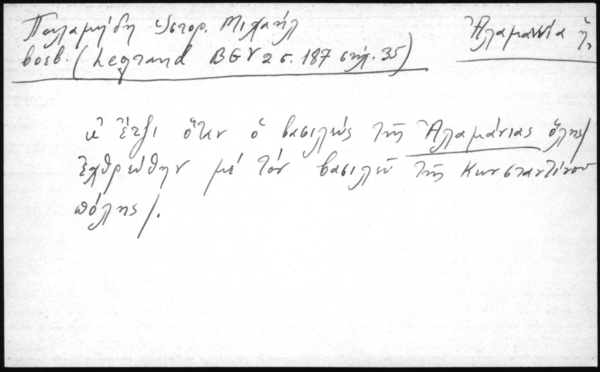 Παλαμήδη Ἱστορ. Μιχαήλ
βοεβ. (Legrand BGV 2 σ. 187 στίχ. 35)
Ἀλαμανία ἡ,
κ' ἔτζι ὅταν ὁ βασιλεύς τῆς Ἀλαμάνιας ὅλης/
ἐχθρεύθην μέ τόν βασιλιᾶ τῆς Κωνσταντίνου
πόλης/.